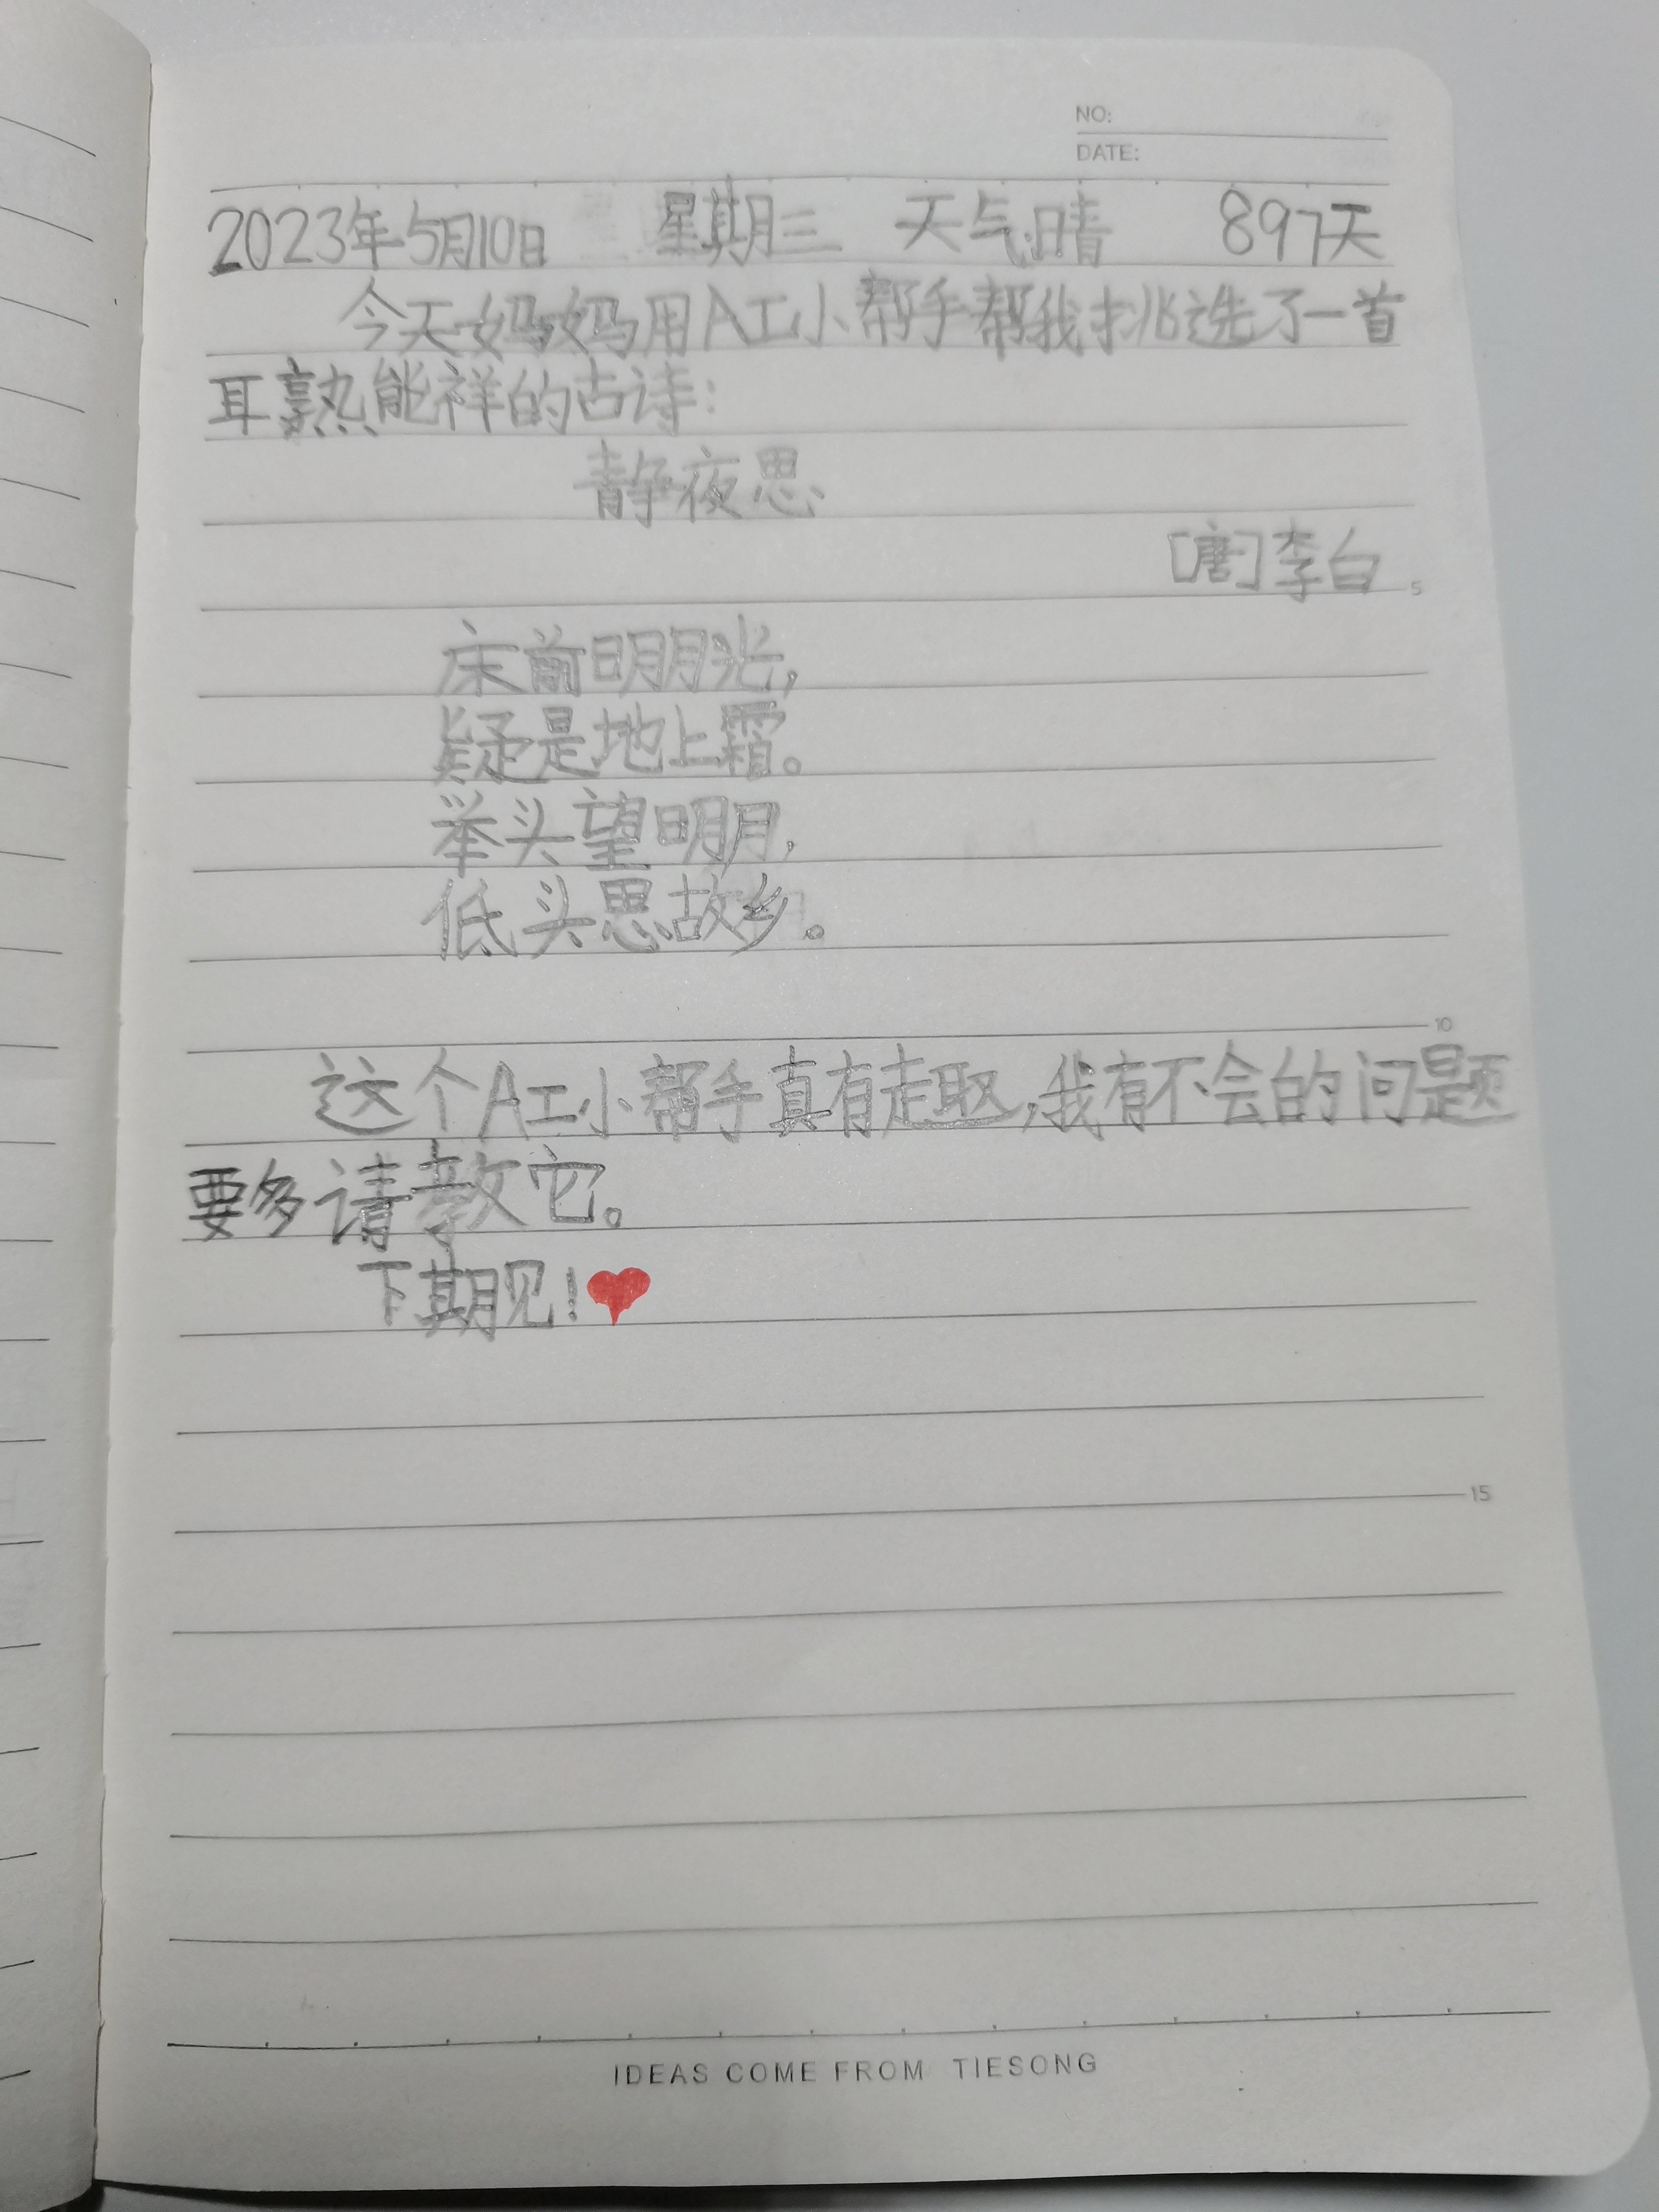 NO:
DATE:
2023年5月10日 星期三 天气:晴 897天
今天妈妈用AI小帮手帮我挑选了一首
耳熟能祥的古诗:
静夜思
[唐]李白
5
床前明月光,
疑是地上霜。
举头望明月,
低头思故乡。
10
这个AI小帮手真有趣,我有不会的问题
要多请教它。
下期见!❤
15
IDEAS COME FROM TIESONG